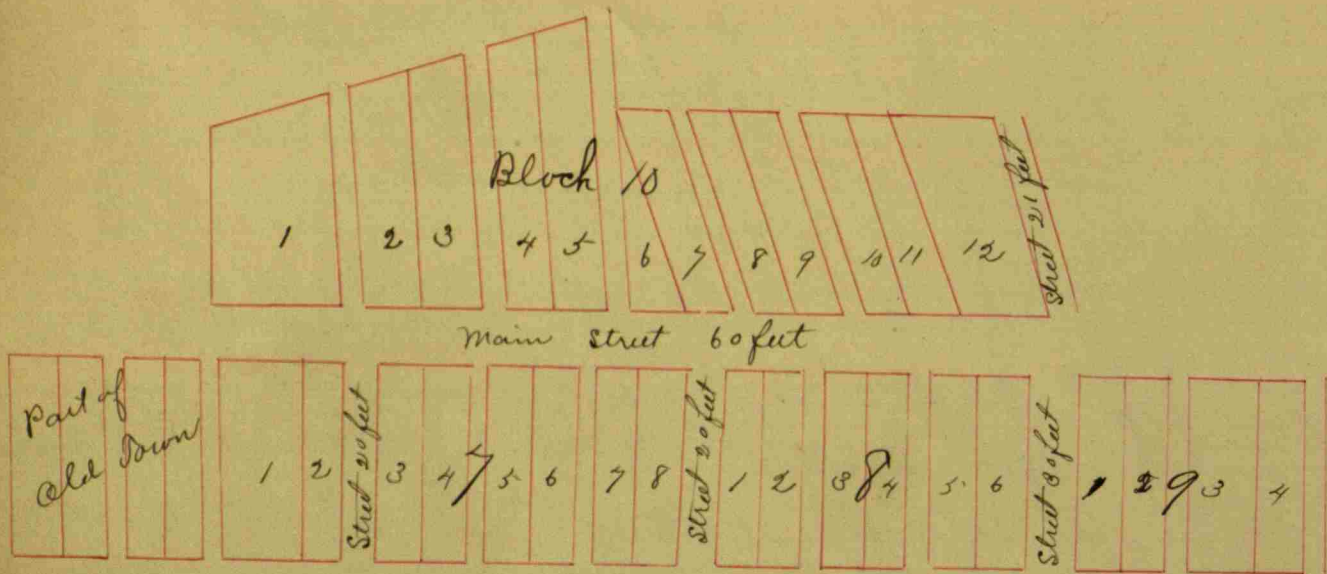 Block 10
1 2 3 4 5 6 7 8 9 10 11 12
Street 21 feet
Main Street 60 feet
Part of
Old Town
1 2
Street 20 feet
3 4 7 5 6 7 8
Street 20 feet
1 2 3 8 4 5 6
Street 30 feet
1 2 9 3 4